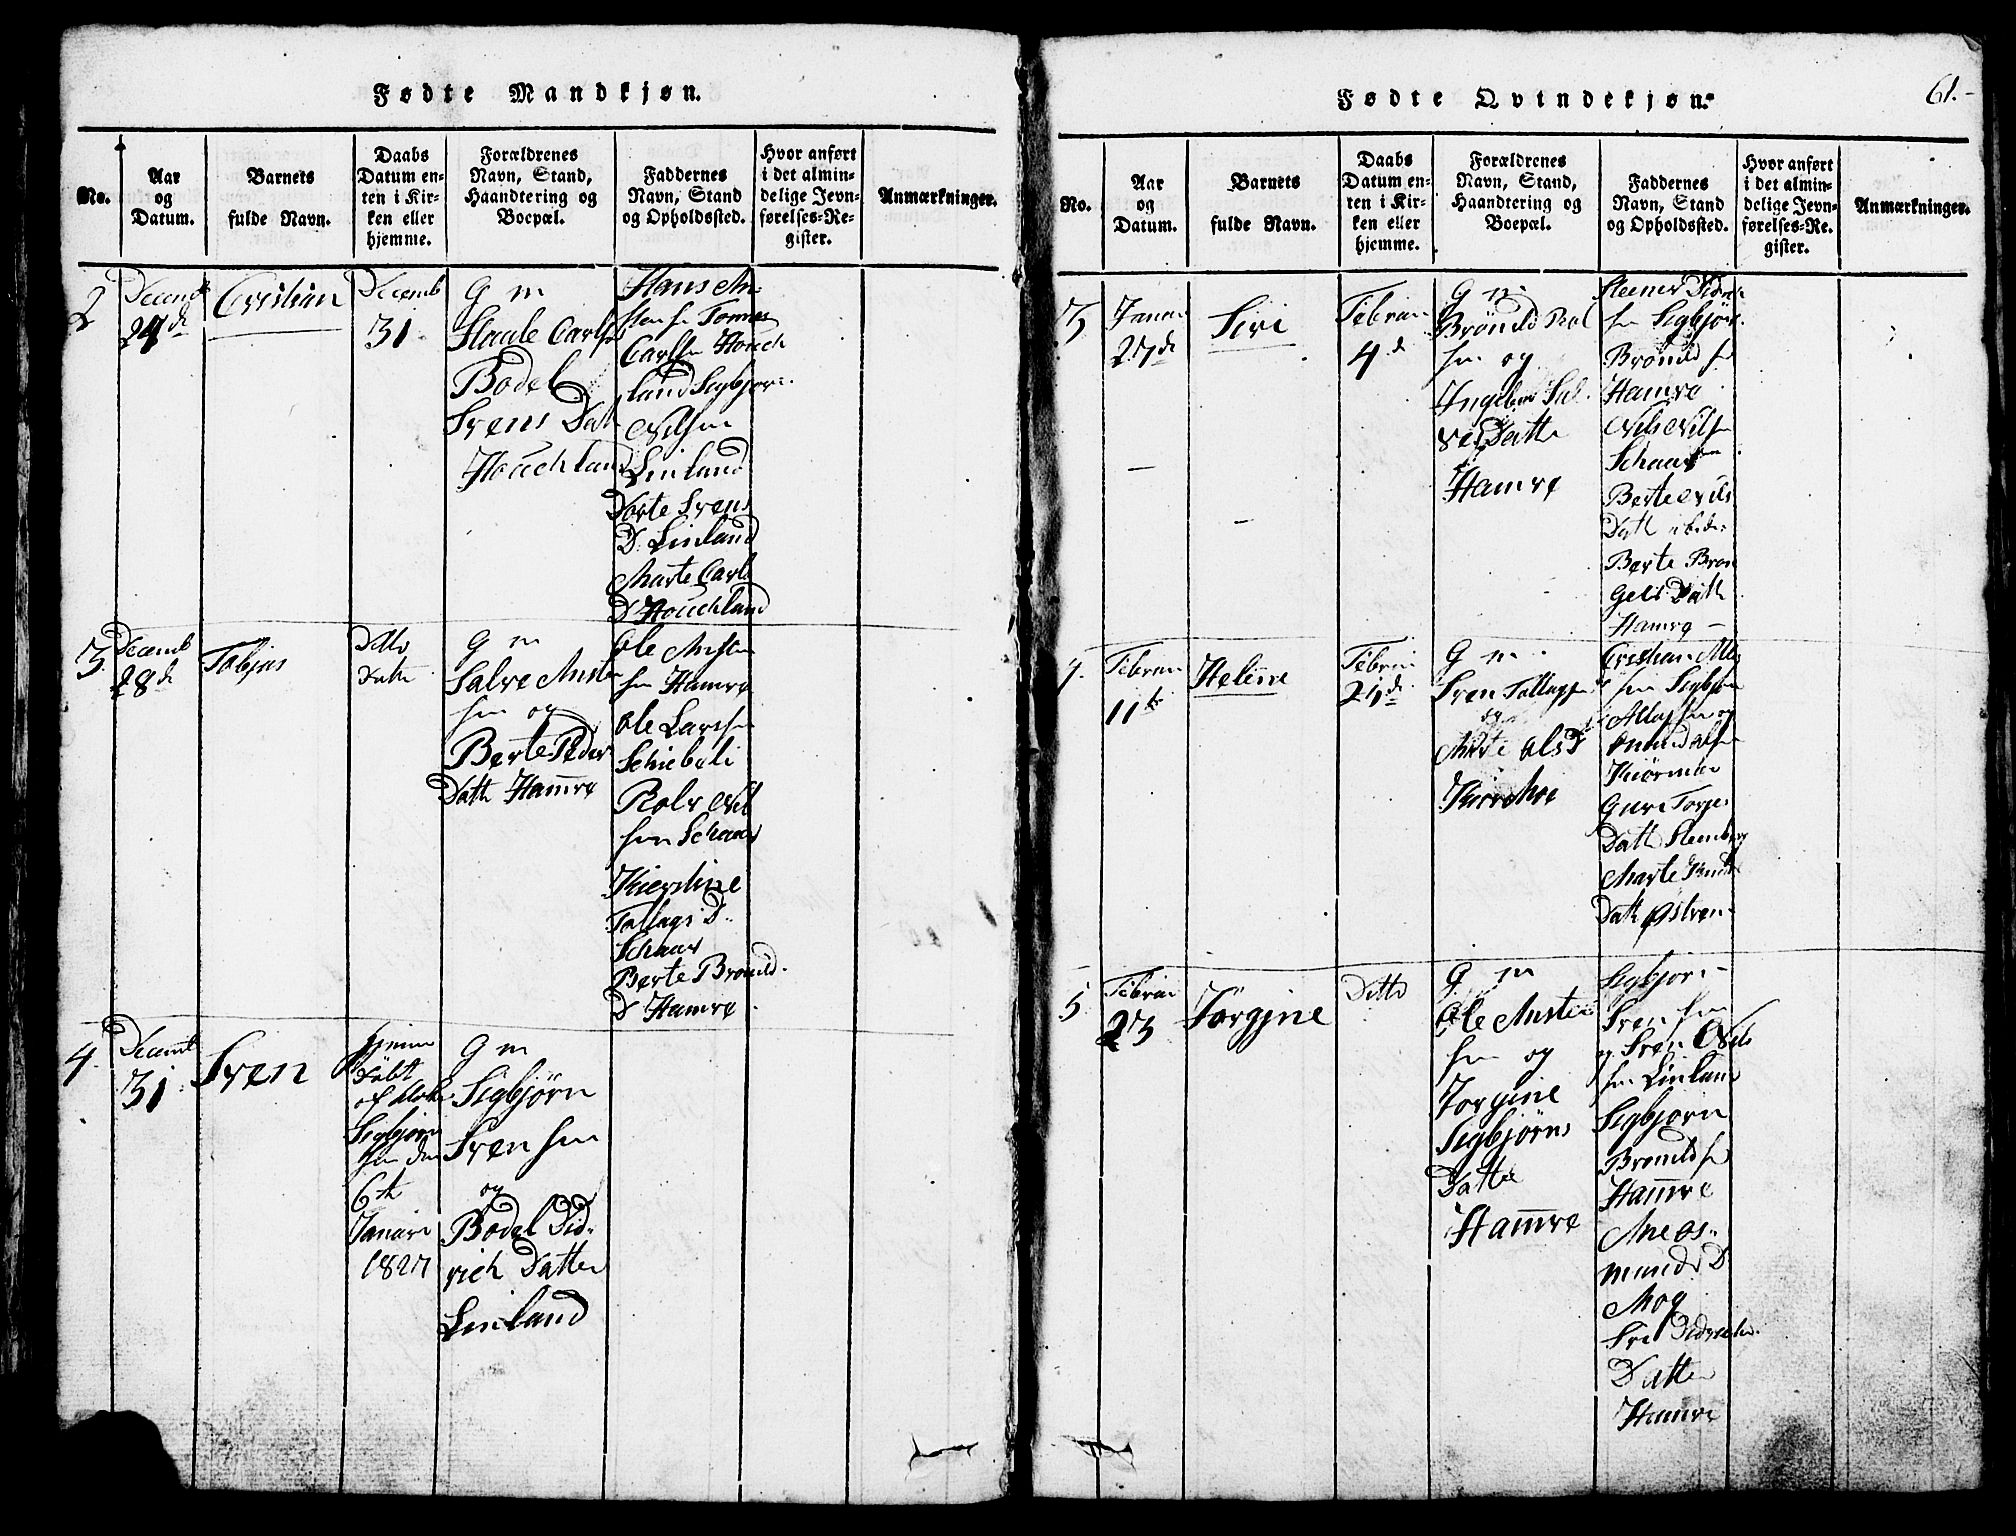 Fødte Mandkjøn.
No.
Aar
og
Datum.
Barnets
fulde Navn.
Daabs
Datum en-
ten i Kir-
ken eller
hjemme.
Forældrenes
Navn, Stand,
Haandtering og
Boepæl.
Faddernes
Navn, Stand
og Opholdssted.
Hvor anført
i det almin-
delige Jevn-
førelses-Re-
gister.
Anmærkninger.
2
Decemb
24de
Cristian
Decemb
31
G m
Staale Carls
Bodel
Svens Datt
Houchland
Hans
Tønnes
Carlsen Houch
land Segbjørn
Nilsen
Linland
Dorte Svens
D. Linland
Marte Carls
D Houchland
3
Decemb
28de
Tobjas
Ditto
Datto
G m
Salve Austen
sen og
Berte Peders
Datte Hamre
Ole Austen
sen Hamre
Ole Larssen
Schiebeli
Rolv Nil
sen Schaar
Kierstine
Tallags D.
Schaar
Berte Bronild
D Hamre
4
Decemb
31
Sven
hjemme
døbt
af
Segbjørn
sen den
6te
Januari
1827
G m
Segbjørn
Svensen
og
Bodel Did-
rich Datter
Linland
Fødte Qvindekjøn.
61.-
No.
Aar
og
Datum.
Barnets
fulde Navn.
Daabs
Datum en-
ten i Kir-
ken eller
hjemme.
Forældrenes
Navn, Stand,
Haandtering og
Boepæl.
Faddernes
Navn, Stand
og Opholdssted.
Hvor anført
i det almin-
delige Jevn-
førelses-Re-
gister.
Anmærkninger.
3
Januar
27de
Siri
Februar
4de
G m
Brønild Rol
sen og
Ingebor Sal
ves Datte
Hamre
Segbjør
Bronild s
Hamre
Nils Nilsen
Schaar
Berte Nils
Datte
Berte Bron
Datte
Hamre
4
Februar
11te
Heline
Februar
24de
G m
Sven Tallagsen
og
Marte Ols D
Cristian
sen Segbjørn
og
Guri Torjes
Datte Stenberg
Marte Knuds
Datte
5
Februar
23
Jørgine
Ditto
G m
Ole Austen
sen og
Jorgine
Segbjørns
Datte
Hamre
Segbjørn
Svensen
og Sven Nils
sen Linland
Segbjorn
Bronilds
Hamre
Ane Os-
munds D
Moe
Siri
Datter
Hamre